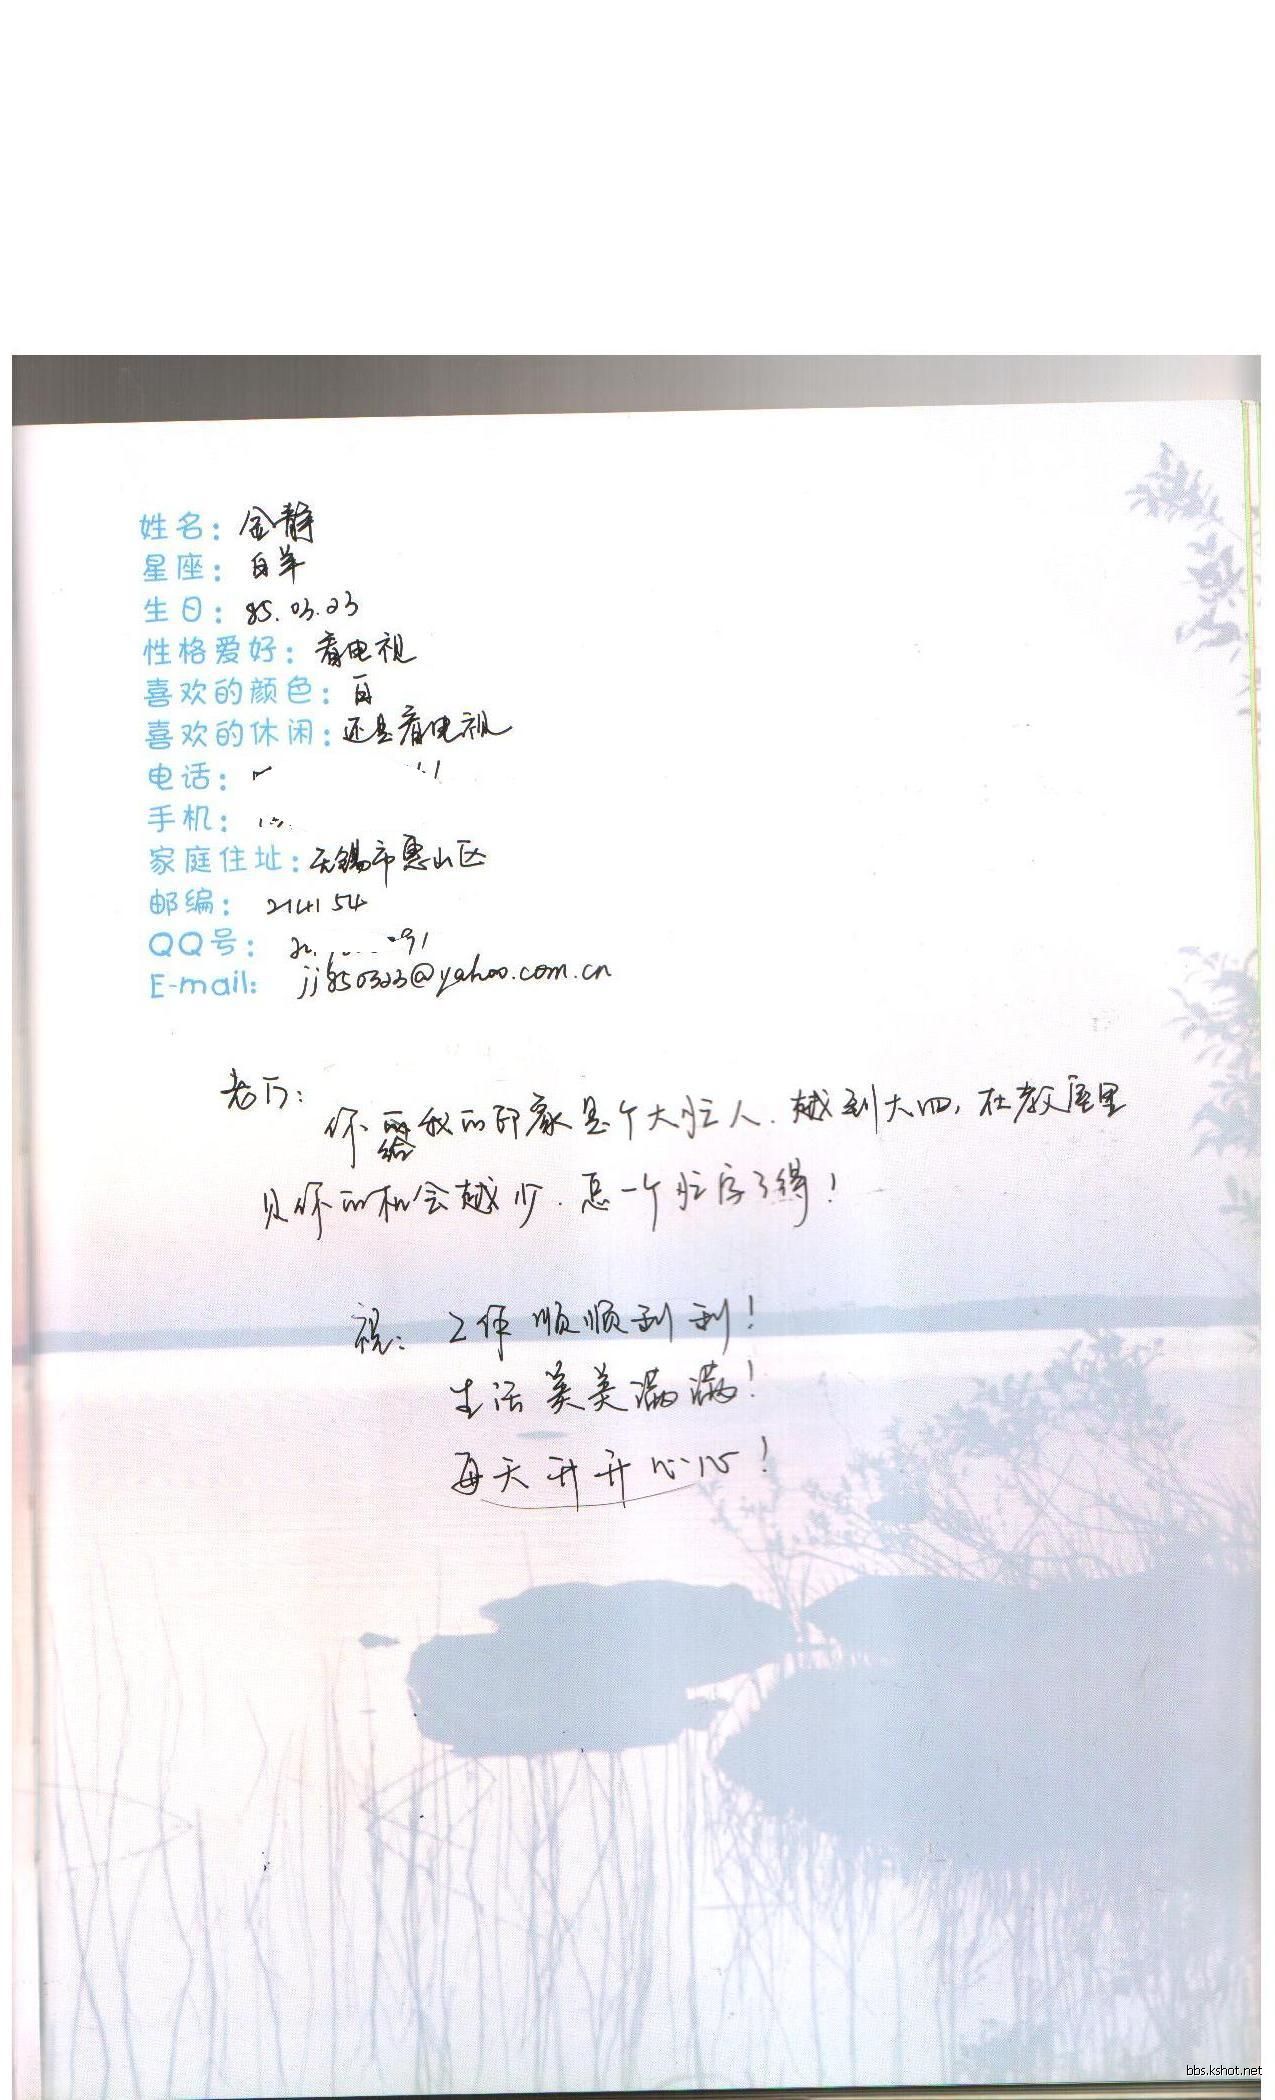 姓名：金静
星座：白羊
生日：85.03.23
性格爱好：看电视
喜欢的颜色：白
喜欢的休闲：还是看电视
电话：
手机：
家庭住址：无锡市惠山区
邮编：214154
QQ号：91
E-mail：jj850323@yahoo.com.cn
老丁：
你给我的印象是个大忙人.越到大四,在教室里
见你的机会越少.怎一个忙字了得！
祝：工作顺顺利利！
生活美美满满！
每天开开心心！
bbs.kshot.net